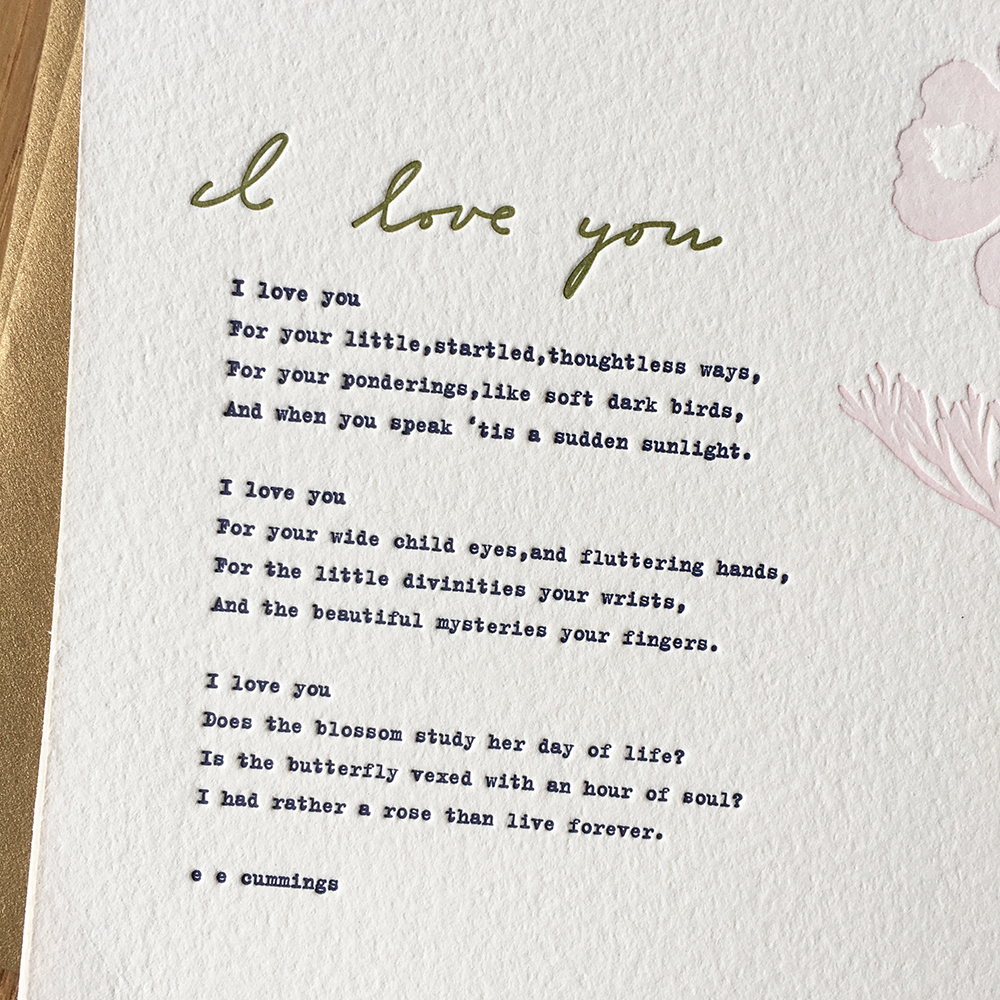 I love you
I love you
For your little,startled,thoughtless ways,
For your ponderings,like soft dark birds,
And when you speak ‘tis a sudden sunlight.
I love you
For your wide child eyes,and fluttering hands,
For the little divinities your wrists,
And the beautiful mysteries your fingers.
I love you
Does the blossom study her day of life?
Is the butterfly vexed with an hour of soul?
I had rather a rose than live forever.
e e cummings